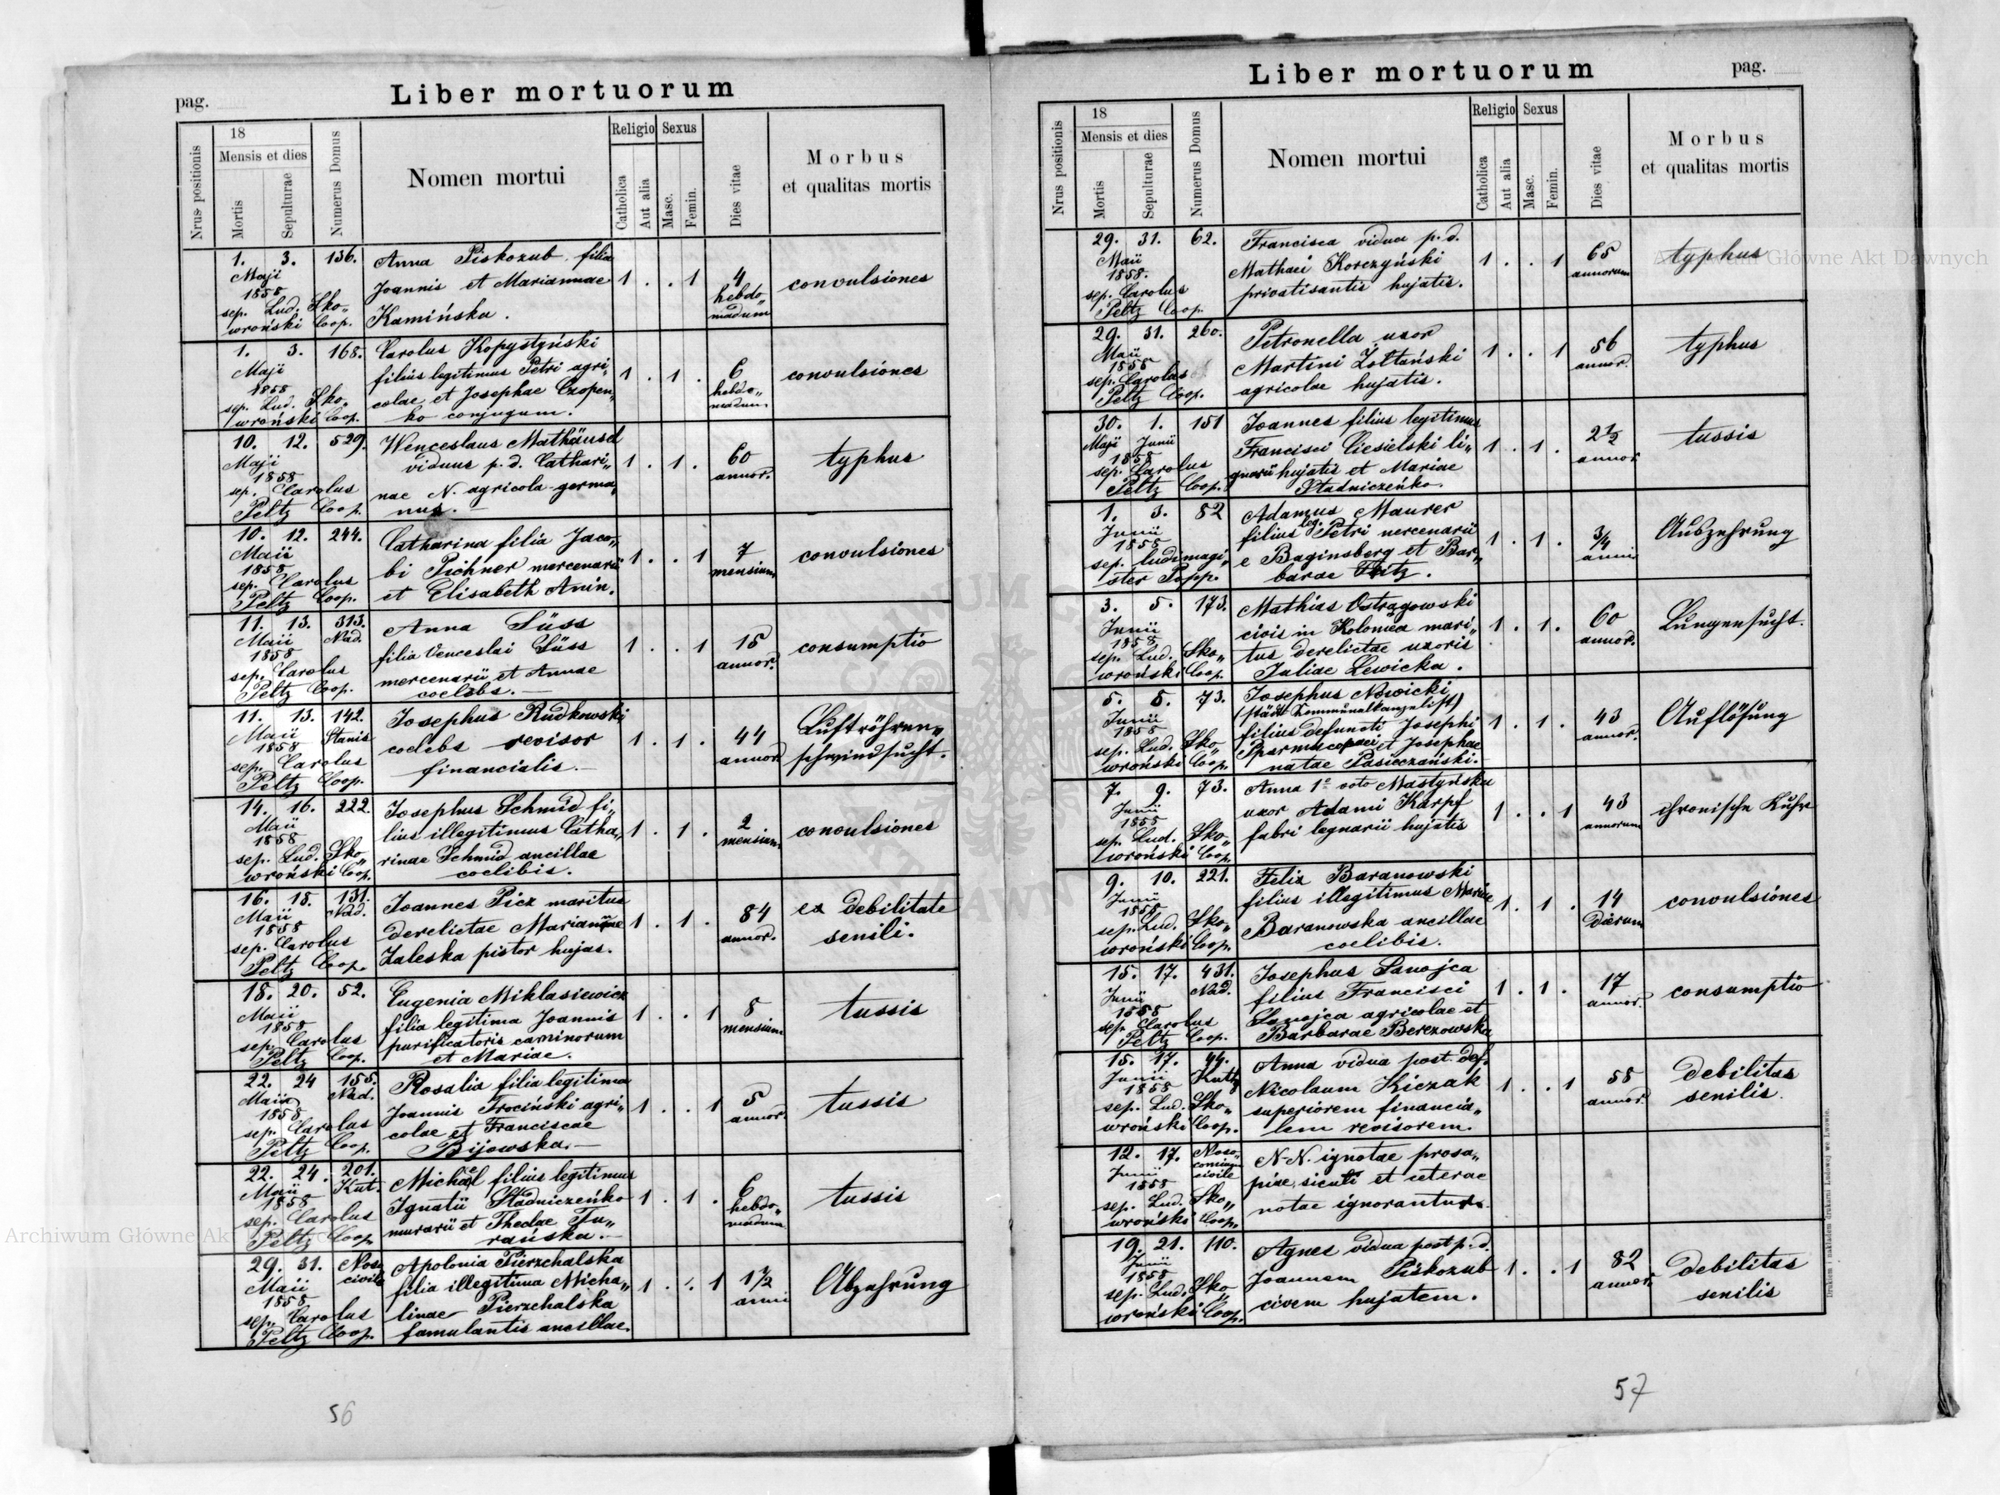 pag.
Liber mortuorum
Nrus positionis
18
Mensis et dies
Mortis
Sepulturae
Numerus Domus
Nomen mortui
Religio
Catholica
Aut alia
Sexus
Masc.
Femin.
Dies vitae
Morbus
et qualitas mortis
1. 3. 136. Anna Piskozub filia
Maji Joannis et Mariannae 1 . . 1 4 convulsiones
1858 hebdo„
sep. Lud. Sko„ Kamińska. madum
wroński Coop.
1. 3. 168. Carolus Kopystyński
Maji filius legitimus Petri agri„ 1 . 1 . 6 convulsiones
1858 colae et Josephae Czopen„ hebdo„
sep. Lud. Sko„ ko conjugum. madum.
wroński Coop.
10. 12. 529. Wenceslaus Mathäusel
Maji viduus p. d. Cathari„ 1 . 1 . 60 typhus
1858 nae N. agricola germa„ annor.
sep. Carolus nus.
Peltz Coop.
10. 12. 244. Catharina filia Jaco„
Maii bi Pichner mercenarii 1 . . 1 7 convulsiones
1858 et Elisabeth mensium
sep. Carolus
Peltz Coop.
11. 13. 313. Anna Süss
Maii Nad. filia Venceslai Süss 1 . . 1 15 consumptio
1858 mercenarii et Annae annor.
sep. Carolus coelebs.
Peltz Coop.
11. 13. 142. Josephus Rudkowski
Maii Stanis coelebs revisor 1 . 1 . 44 Luftröhren„
1858 financialis. annor. schwindsucht.
sep. Carolus
Peltz Coop.
14. 16. 222. Josephus Schmid fi„
Maii lius illegitimus Catha„ 1 . 1 . 2 convulsiones
1858 rinae Schmid ancillae mensium
sep. Lud. Sko„ coelibis.
wroński Coop.
16. 18. 131. Joannes Picz maritus
Maii Nad. derelictae Mariannae 1 . 1 . 84 ex debilitate
1858 Zaleska pistor hujas. annor. senili.
sep. Carolus
Peltz Coop.
18. 20. 52. Eugenia Miklasiewicz
Maii filia legitima Joannis 1 . . 1 8 tussis
1858 purificatoris caminorum mensium
sep. Carolus et Mariae.
Peltz Coop.
22. 24 155. Rosalia filia legitima
Maii Nad. Joannis Trociński agri„ 1 . . 1 5 tussis
1858 colae et Franciscae annor.
sep. Carolus Bijowska.
Peltz Coop.
22. 24. 201. Michael filius legitimus
Maii Kut. Ignatii Stadniczeńko 1 . 1 . 6 tussis
1858 murarii et Theclae Tu„ hebdo„
sep. Carolus rańska. madum
Peltz Coop.
29. 31. Noso. Apolonia Pierzchalska
Maii civile filia illegitima Micha„ 1 . . 1 1½ Abzehrung
1858 linae Pierzchalska anni
sep. Carolus famulantis ancillae.
Peltz Coop.
56
pag.
Liber mortuorum
Nrus positionis
18
Mensis et dies
Mortis
Sepulturae
Numerus Domus
Nomen mortui
Religio
Catholica
Aut alia
Sexus
Masc.
Femin.
Dies vitae
Morbus
et qualitas mortis
29. 31. 62. Francisca vidua p. d.
Maii Mathaei Korczyński 1 . . 1 65 typhus
1858. privatisantis hujatis. annorum
sep. Carolus
Peltz Coop.
29. 31. 260. Petronella uxor
Maii Martini Żółtański 1 . . 1 56 typhus
1858 agricolae hujatis. annor.
sep. Carolus
Peltz Coop.
30. 1. 151 Joannes filius legitimus
Maji Junii Francisci Ciesielski li„ 1 . 1 . 2½ tussis
1858 gnarii hujatis et Mariae annor.
sep. Carolus Stadniczeńko.
Peltz Coop.
1. 3. 82 Adamus Maurer
Junii filius leg. Petri mercenarii 1 . 1 . ¾ Auszehrung
1858 e Baginsberg et Bar„ anni
sep. ludimagi„ barae Fritz.
ster Popp.
3. 5. 173. Mathias Ostragowski
Junii civis in Kolomea mari„ 1 . 1 . 60 Lungensucht.
1858 tus derelictae uxoris annor.
sep. Lud. Sko„ Juliae Lewicka.
wroński Coop.
5. 5. 73. Josephus Nowicki
Junii (städt. Kommunalkanzelist) 1 . 1 . 43 Auflösung
1858 filius defuncti Josephi annor.
sep. Lud. Sko„ et Josephae
wroński Coop. natae Pasieczański.
7. 9. 73. Anna 1º voto Mastyńska
Junii uxor Adami Karpf 1 . . 1 43 chronische Ruhr
1858 fabri lignarii hujatis annorum
sep. Lud. Sko„
wroński Coop.
9. 10. 221. Felix Baranowski
Junii filius illegitimus Mariae 1 . 1 . 14 convulsiones
1858 Baranowska ancillae dierum
sep. Lud. Sko„ coelibis.
wroński Coop.
15. 17. 431. Josephus Sanojca
Junii Nad. filius Francisci 1 . 1 . 17 consumptio
1858 Sanojca agricolae et annor.
sep. Carolus Barbarae Berezowska
Peltz Coop.
15. 17. 44. Anna vidua post def.
Junii Kutty Nicolaum Kiczak 1 . . 1 58 debilitas
1858 superiorem financia„ annor. senilis.
sep. Lud. Sko„ lem revisorem.
wroński Coop.
12. 17. Noso„ N. N. ignotae prosa„
Junii comium piae, sicuti et ceterae
1858 civile notae ignorantur.
sep. Lud. Sko„
wroński Coop.
19. 21. 110. Agnes vidua post p. d.
Junii Joannem Piskozub 1 . . 1 82 debilitas
1858 civem hujatem. annor. senilis
sep. Lud. Sko„
wroński Coop.
Drukiem i nakładem drukarni Ludowej we Lwowie.
57
Archiwum Główne Akt Dawnych
Archiwum Główne Akt Dawnych